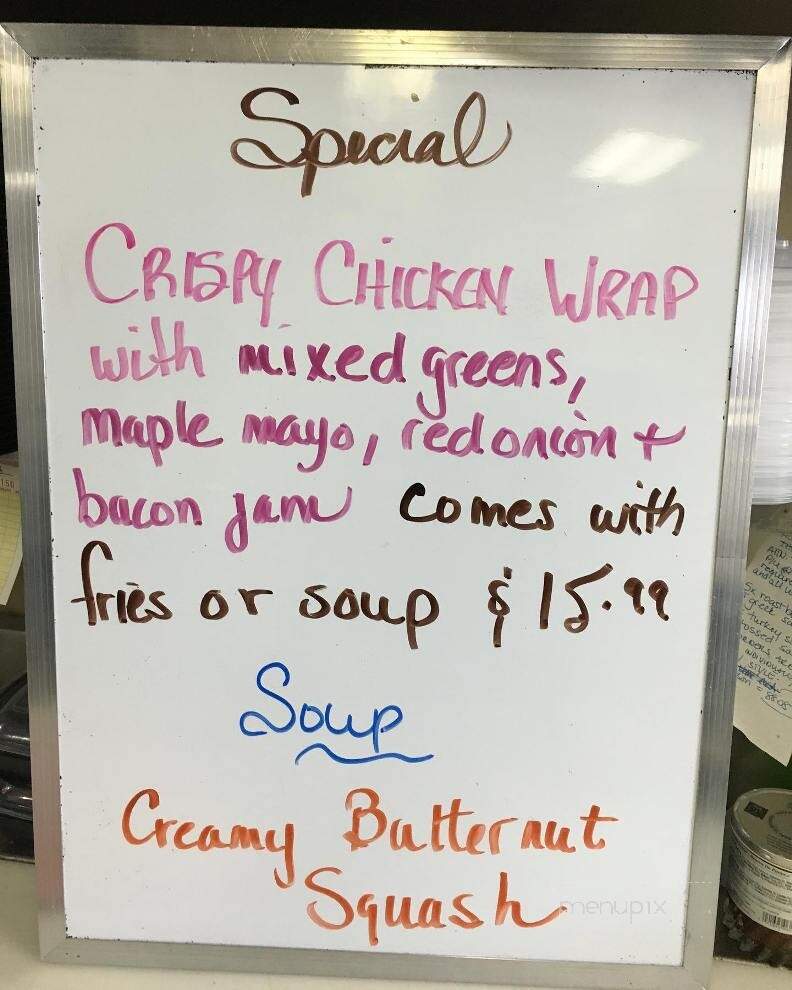 Special
CRISPY CHICKEN WRAP
with mixed greens,
maple mayo, red onion +
bacon jam comes with
fries or soup $15.99
Soup
Creamy Butternut
Squash
menupix
150
Sx roast
greek
turkey